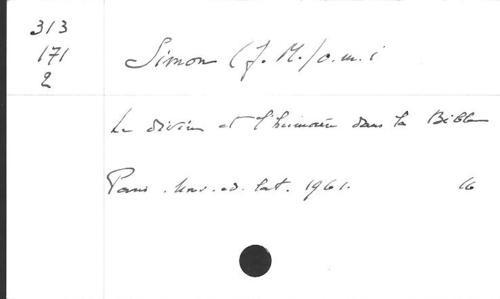 313
171
2
Simon (J. M.) o.m.i
Le divin et l'humain dans la Bible
Paris. Univ. cath. 1961. 16